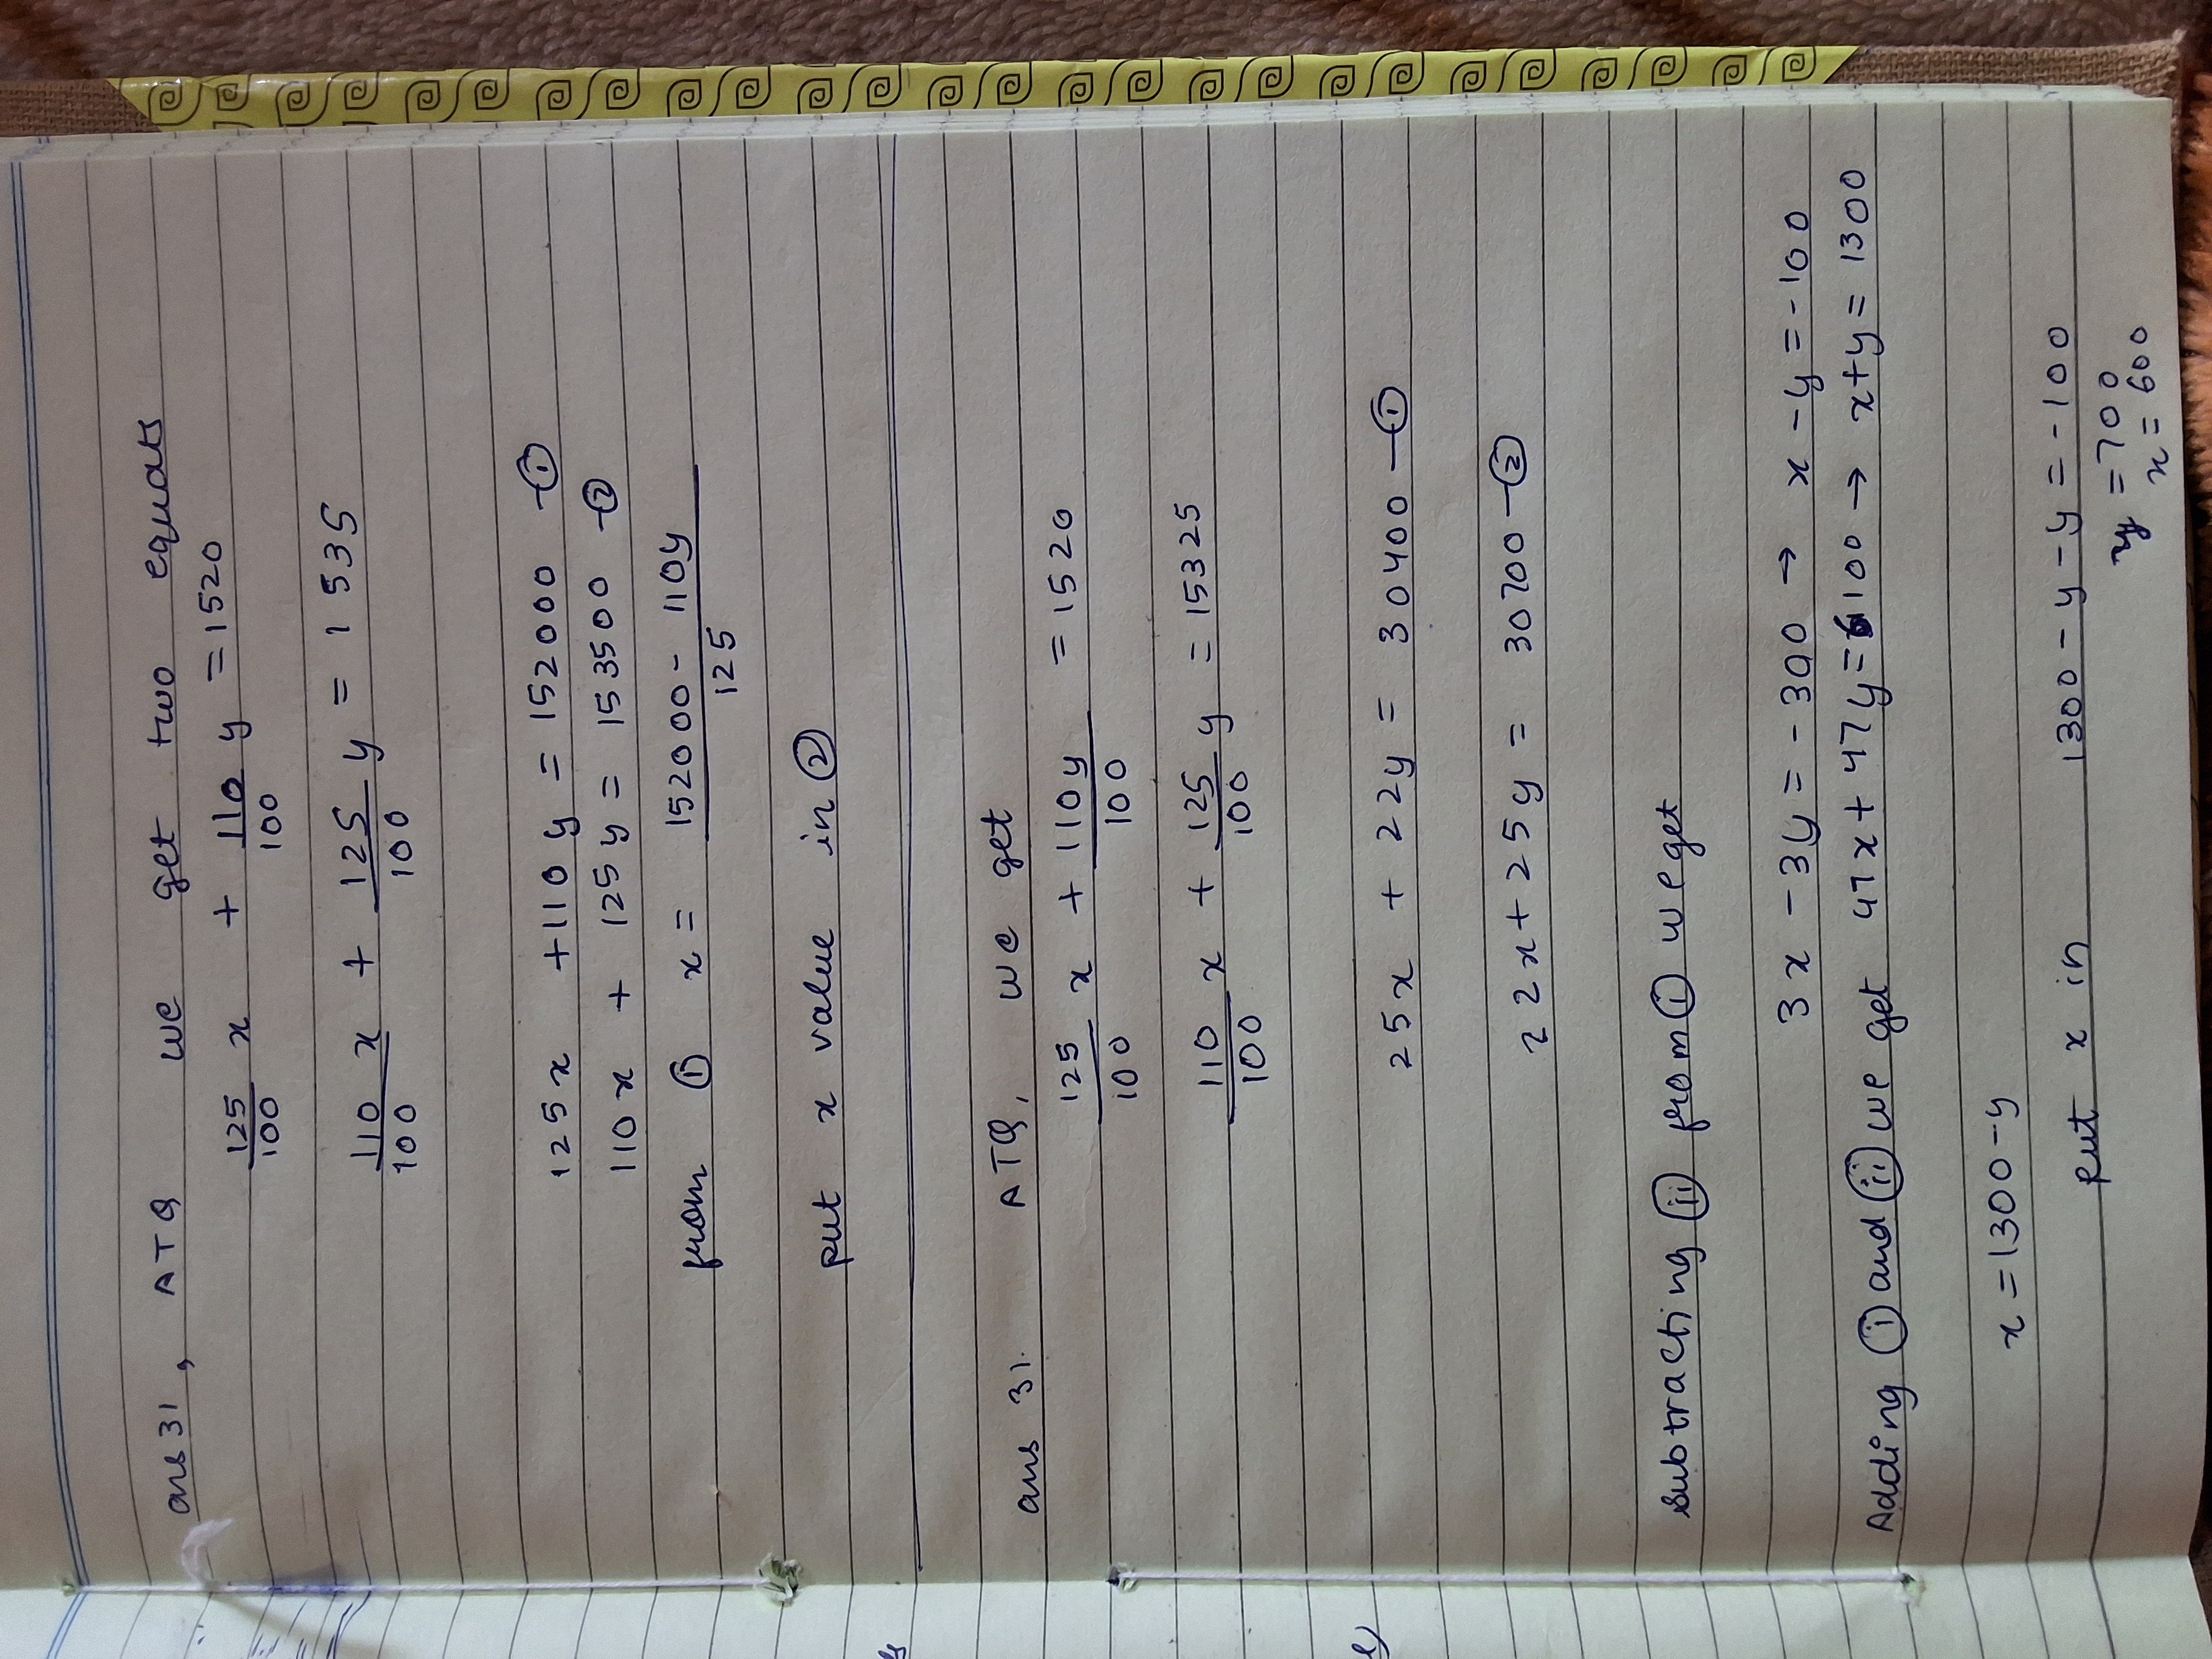 ans 31, ATQ we get two equats
125/100 x + 110/100 y = 1520
110/100 x + 125/100 y = 1535
125x + 110y = 152000 - ①
110x + 125y = 153500 - ②
from ① x = 152000 - 110y / 125
put x value in ②
ans 31. ATQ, we get
125/100 x + 110y/100 = 1520
110/100 x + 125/100 y = 15325
25x + 22y = 30400 - ①
22x + 25y = 30700 - ②
subtracting ⓘⓘ from ⓘ we get
3x - 3y = -300 → x - y = -100
Adding ⓘ and ⓘⓘ we get 47x + 47y = 6100 → x + y = 1300
x = 1300 - y
put x in 1300 - y - y = -100
y = 700
x = 600